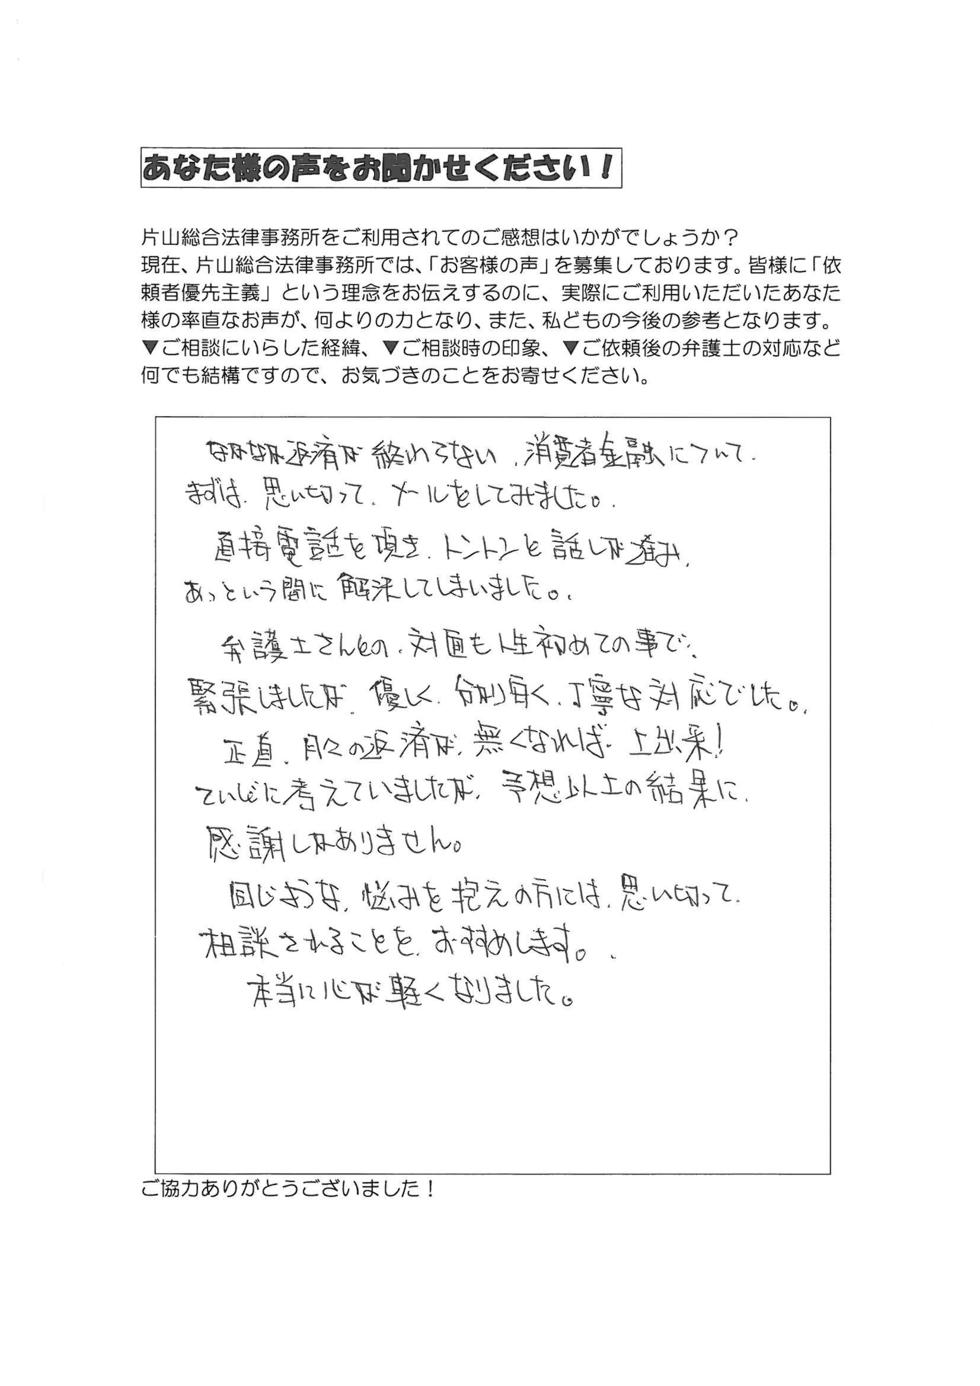 あなた様の声をお聞かせください！
片山総合法律事務所をご利用されてのご感想はいかがでしょうか？
現在、片山総合法律事務所では、「お客様の声」を募集しております。皆様に「依
頼者優先主義」という理念をお伝えするのに、実際にご利用いただいたあなた
様の率直なお声が、何よりの力となり、また、私どもの今後の参考となります。
▼ご相談にいらした経緯、▼ご相談時の印象、▼ご依頼後の弁護士の対応など
何でも結構ですので、お気づきのことをお寄せください。
なかなか返済が終わらない、消費者金融について、
まずは、思い切って、メールをしてみました。
直接電話を頂き、トントンと話しが進み、
あっという間に解決してしまいました。
弁護士さんとの、対面も人生初めての事で、
緊張しましたが、優しく、分かり安く、丁寧な対応でした。
正直、月々の返済が、無くなれば、上出来！
ていどに考えていましたが、予想以上の結果に、
感謝しかありません。
同じような、悩みを抱えの方には、思い切って、
相談されることを、おすすめします。
本当に心が軽くなりました。
ご協力ありがとうございました！